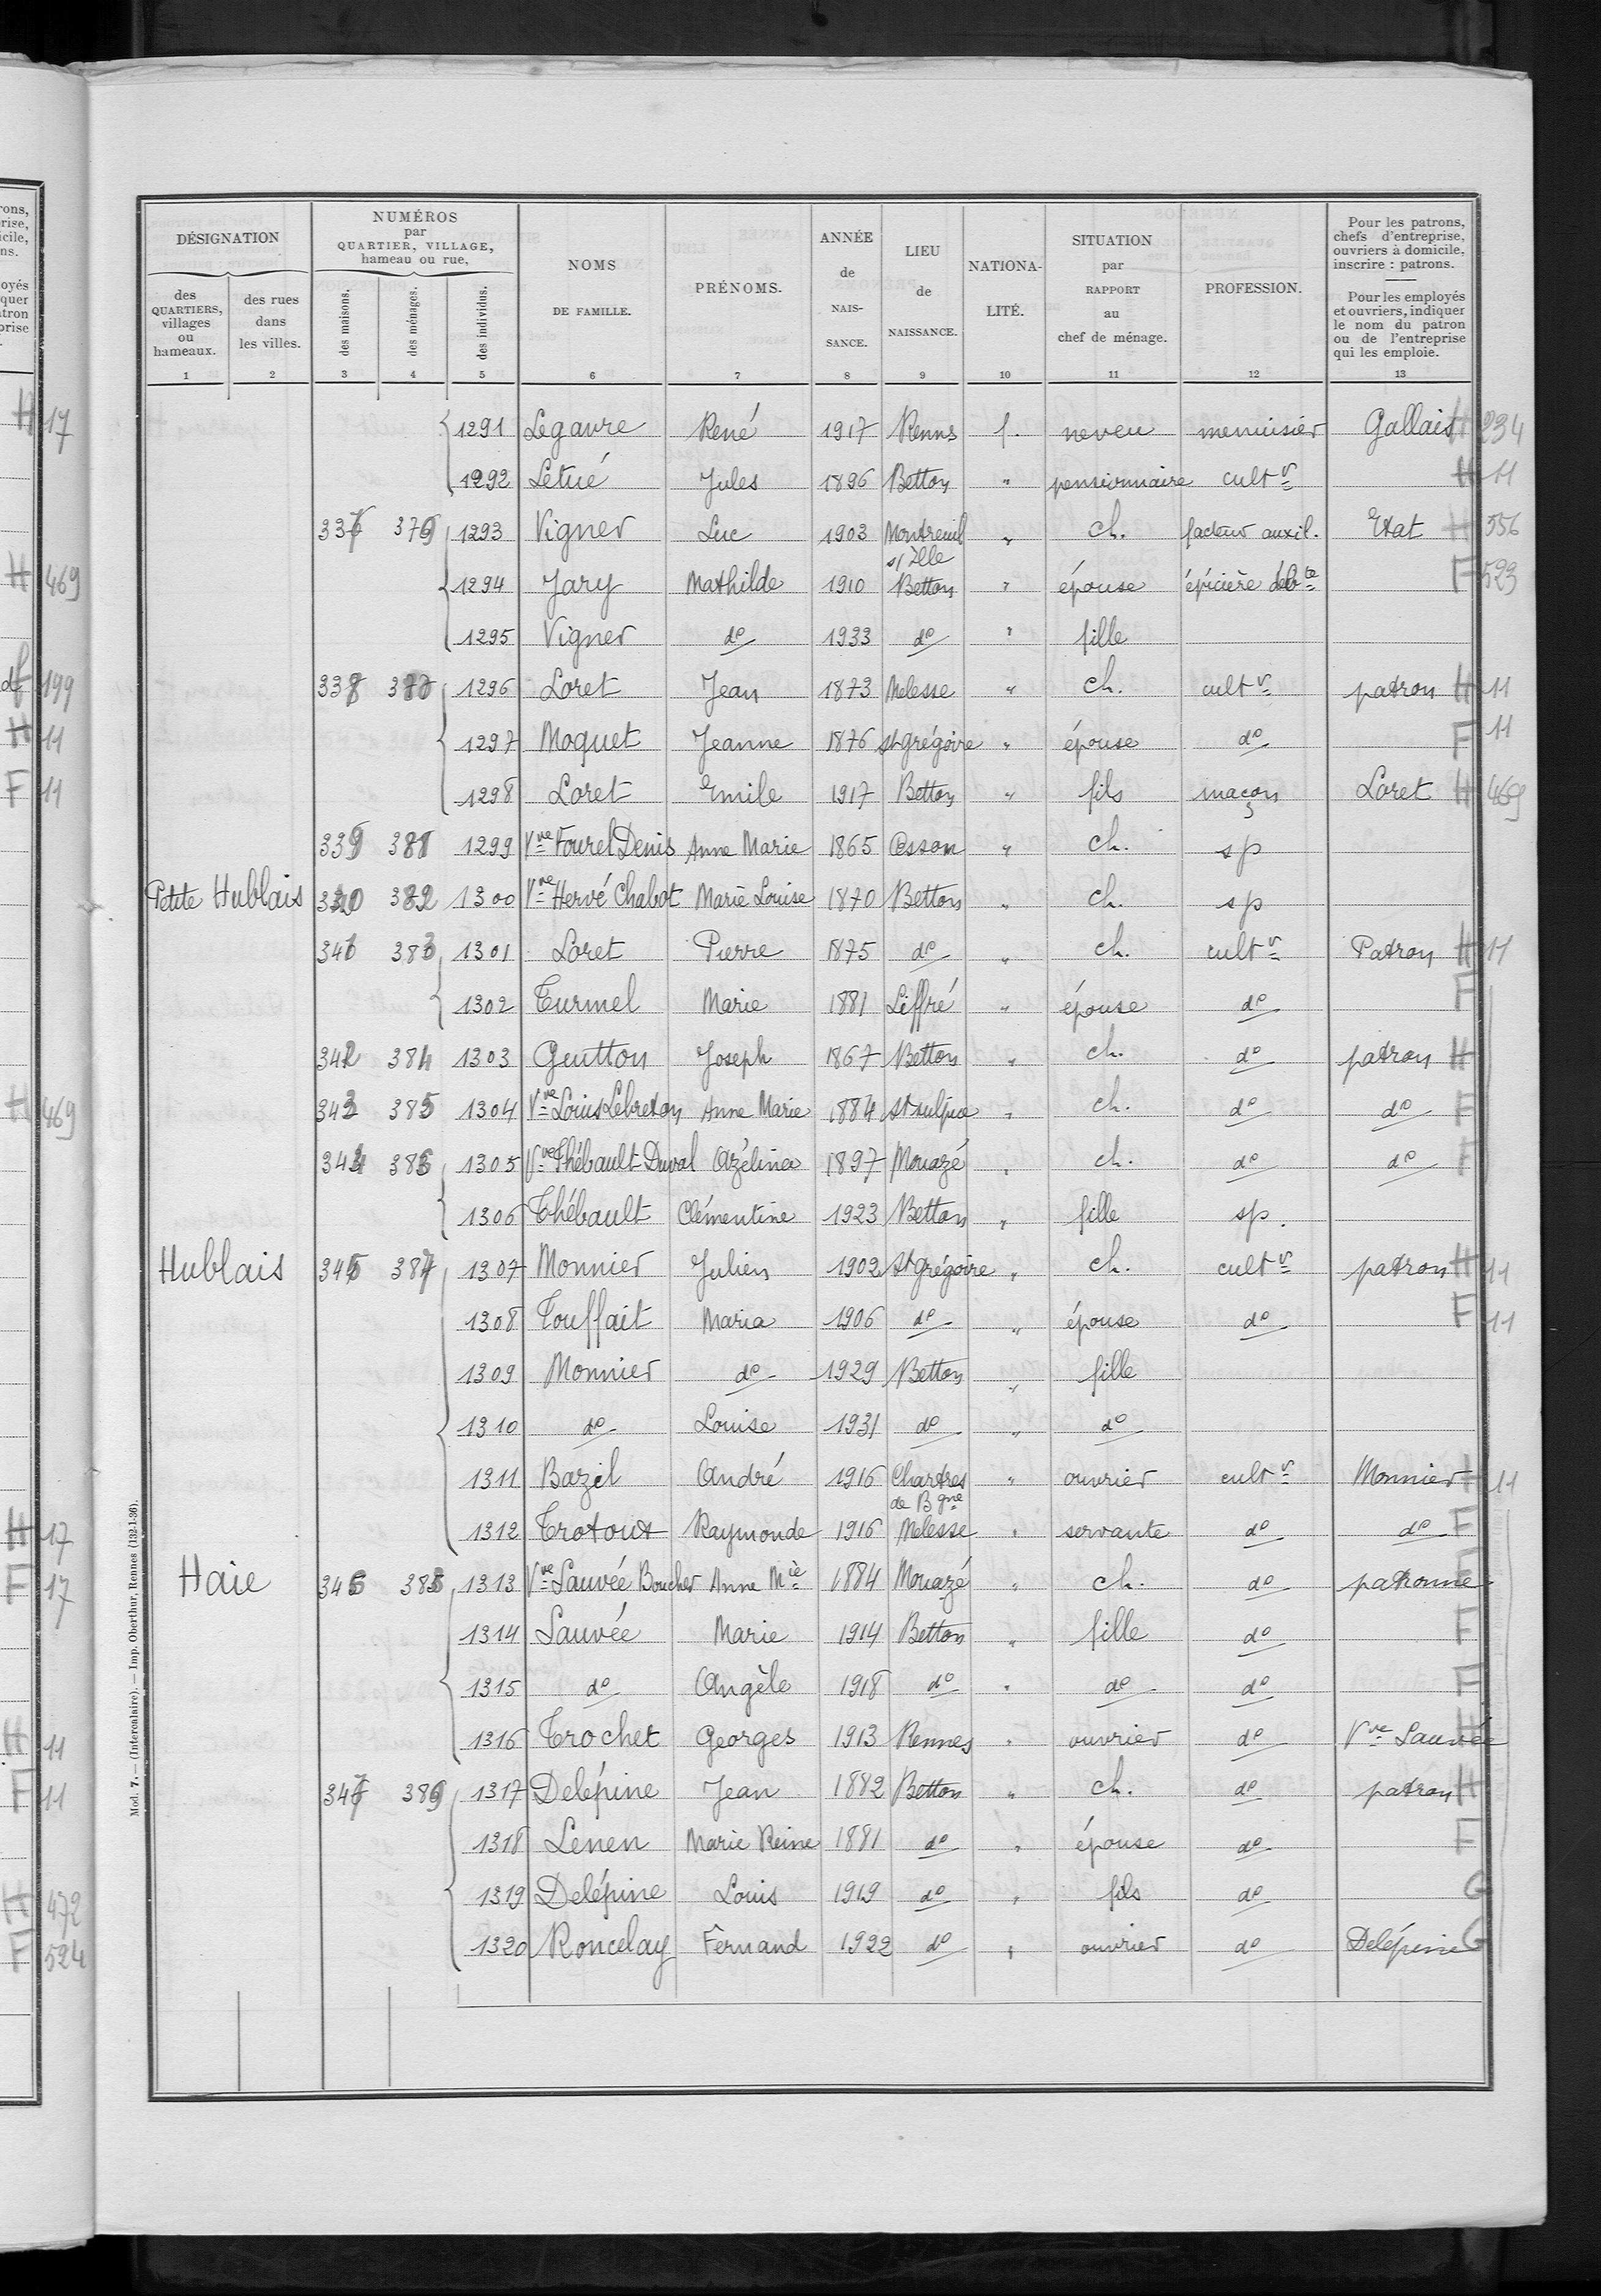 DÉSIGNATION | NUMÉROS par QUARTIER, VILLAGE, hameau ou rue, | NOMS DE FAMILLE. | PRÉNOMS. | ANNÉE de NAIS-SANCE. | LIEU de NAISSANCE. | NATIONA-LITÉ. | SITUATION par RAPPORT au chef de ménage. | PROFESSION. | Pour les patrons, chefs d'entreprise, ouvriers à domicile, inscrire : patrons. Pour les employés et ouvriers, indiquer le nom du patron ou de l'entreprise qui les emploie.
des QUARTIERS, villages ou hameaux. | des rues dans les villes. | des maisons. | des ménages. | des individus.
1 2 3 4 5 6 7 8 9 10 11 12 13
1291 Legavre René 1917 Rennes f. neveu menuisier Gallais H 234
1292 Letué Jules 1896 Betton " pensionnaire cultr H 11
337 379 1293 Vigner Luc 1903 Montreuil s/Ille " ch. facteur auxil. Etat H 556
1294 Jary Mathilde 1910 Betton " épouse épicière débte F 523
1295 Vigner do 1933 do " fille
338 380 1296 Loret Jean 1873 Melesse " ch. cultr patron H 11
1297 Moquet Jeanne 1876 St grégoire " épouse do F 11
1298 Loret Emile 1917 Betton " fils maçon Loret H 469
339 381 1299 Vve Fourel Denis Anne Marie 1865 Cesson " ch. sp
Petite Hublais 340 382 1300 Vve Hervé Chabot Marie Louise 1870 Betton " ch. sp
341 383 1301 Loret Pierre 1875 do " ch. cultr Patron H 11
1302 Turmel Marie 1881 Liffré " épouse do F
342 384 1303 Guitton Joseph 1867 Betton " ch. do patron H
343 385 1304 Vve Louis Lebreton Anne Marie 1884 St sulpice " ch. do do F
344 386 1305 Vve Thébault Duval Azélina 1897 Mouazé " ch. do do F
1306 Thébault Clémentine 1923 Betton " fille sp.
Hublais 345 387 1307 Monnier Julien 1902 St grégoire " ch. cultr patron H 11
1308 Touffait Maria 1906 do " épouse do F 11
1309 Monnier do 1929 Betton " fille
1310 do Louise 1931 do " do
1311 Bazil André 1916 Chartres de Bgne " ouvrier cultr Monnier H 11
1312 Trotoux Raymonde 1916 Melesse " servante do do F
Haie 346 388 1313 Vve Sauvée Boucher Anne Mie 1884 Mouazé " ch. do patronne F
1314 Sauvée Marie 1914 Betton " fille do F
1315 do Angèle 1918 do " do do F
1316 Trochet Georges 1913 Rennes " ouvrier do Vve Sauvée H
347 389 1317 Delépine Jean 1882 Betton " ch. do patron H
1318 Lenen Marie Reine 1881 do " épouse do F
1319 Delépine Louis 1919 do " fils do G
1320 Roncelay Fernand 1922 do " ouvrier do Delépine G
Mod. 7. — (Intercalaire). — Imp. Oberthur, Rennes (132-1-36).
H 17
H 469
199
H 11
F 11
H 469
H 17
F 17
H 11
F 11
H 472
F 524